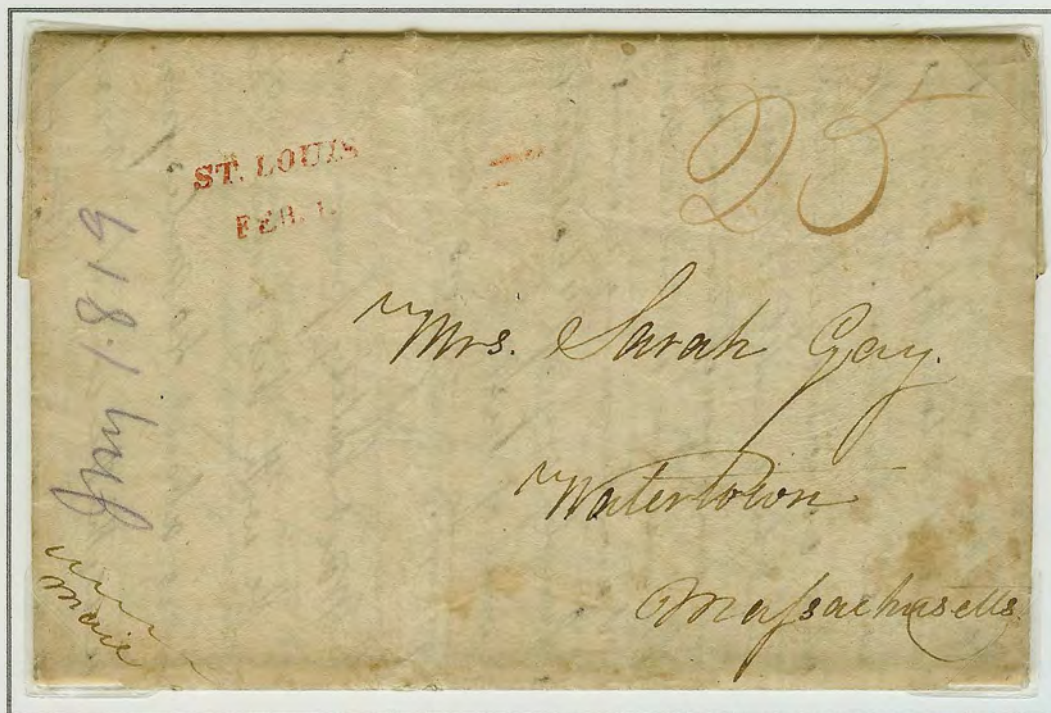 ST. LOUIS
FEB. 1.
25
Mrs. Sarah Gay.
Watertown
Massachusetts
Jny 1819